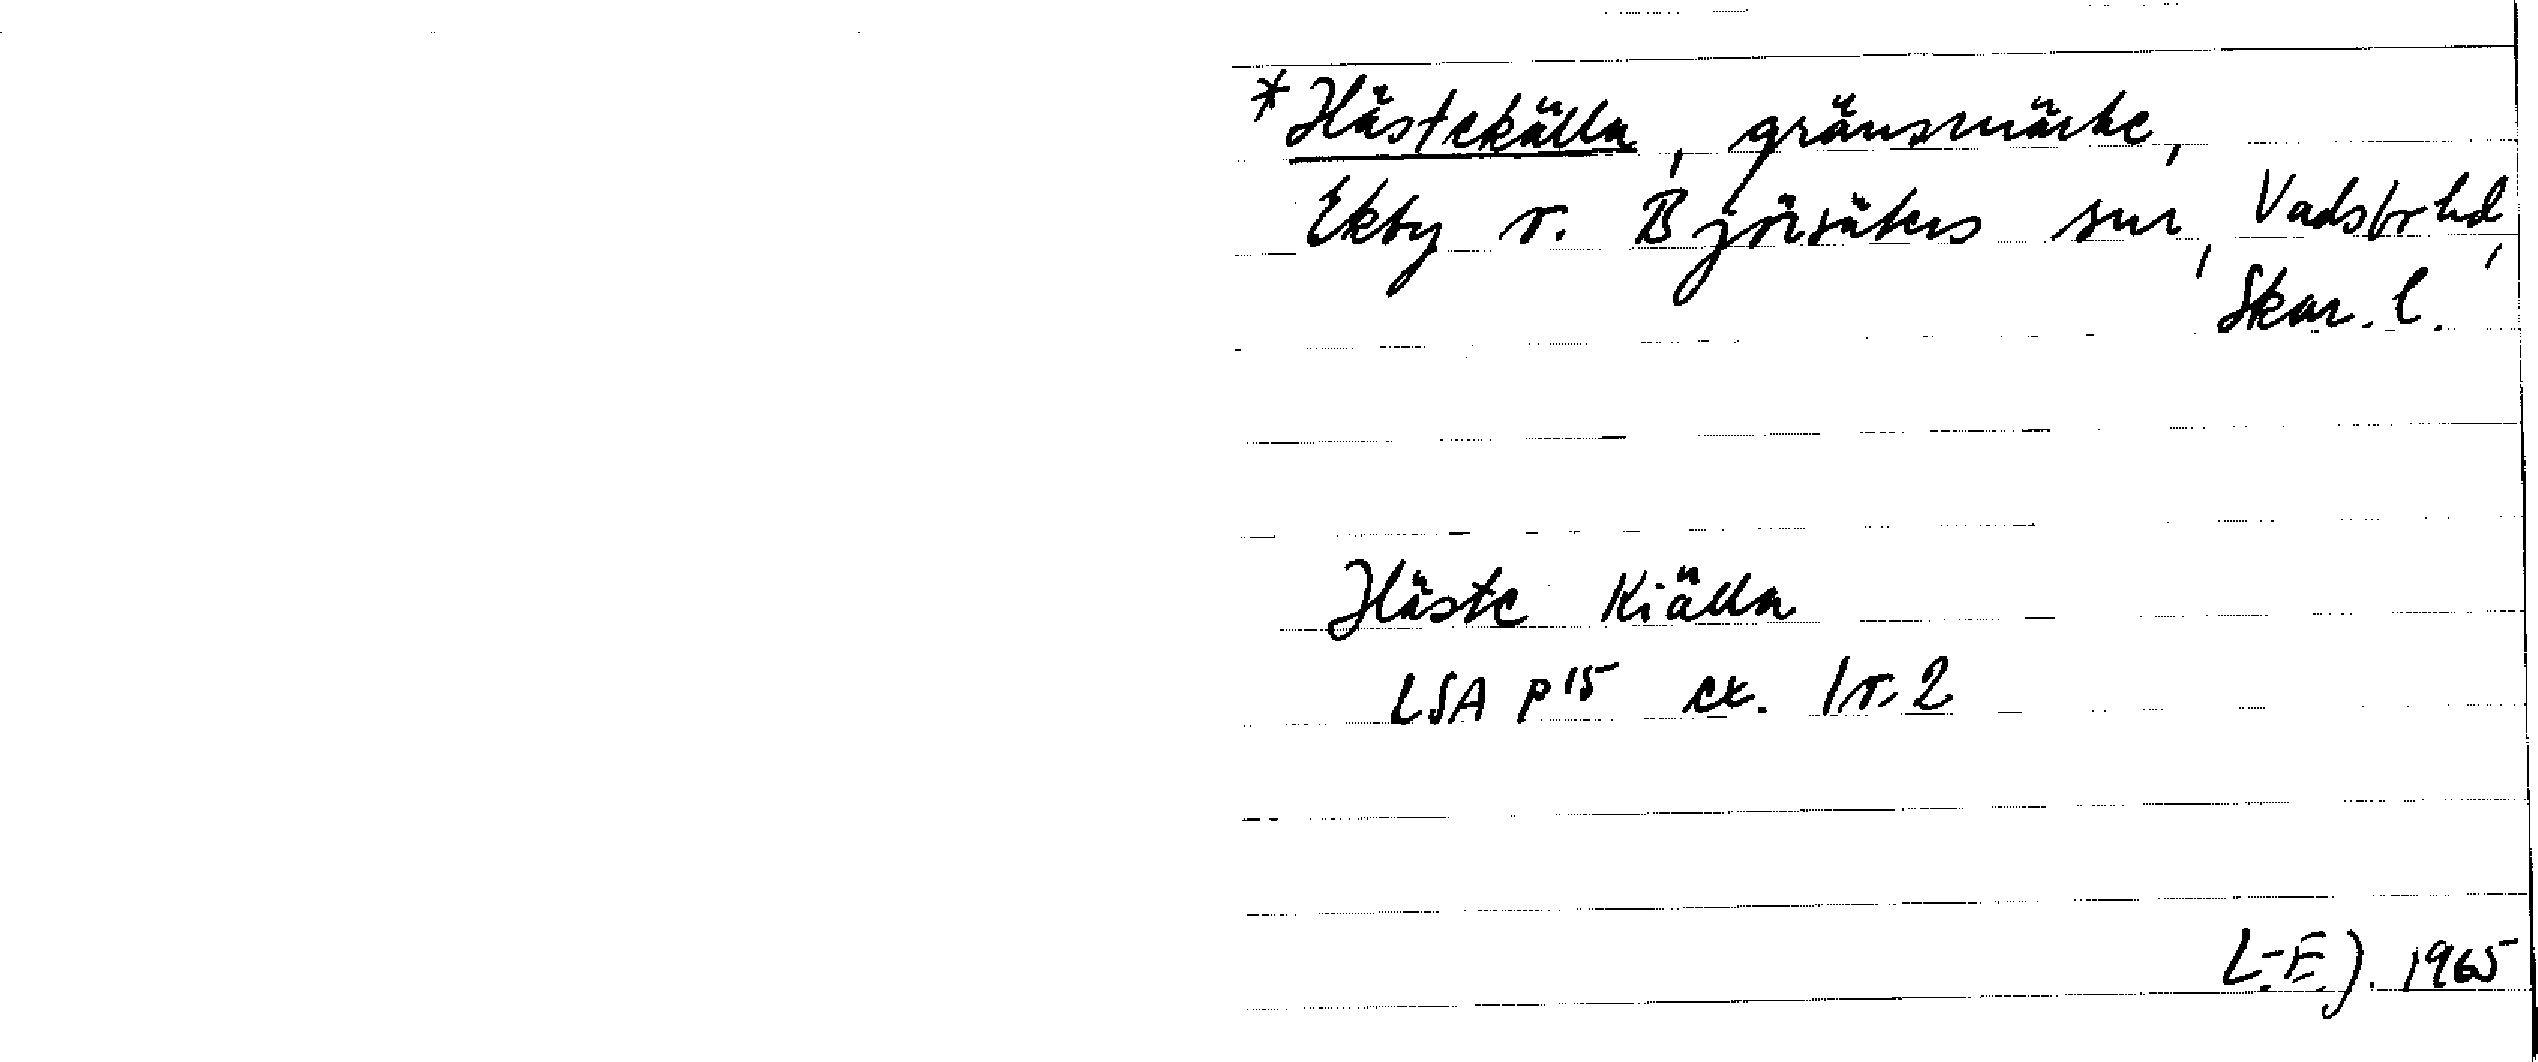 *Hästekälla, gränsmärke,
Ekby o. Björsäters snr, Vadsbr hd,
Skar. l.
Häste Kiälla
LSA P15 ex. 1 o. 2
L.-E. J. 1965